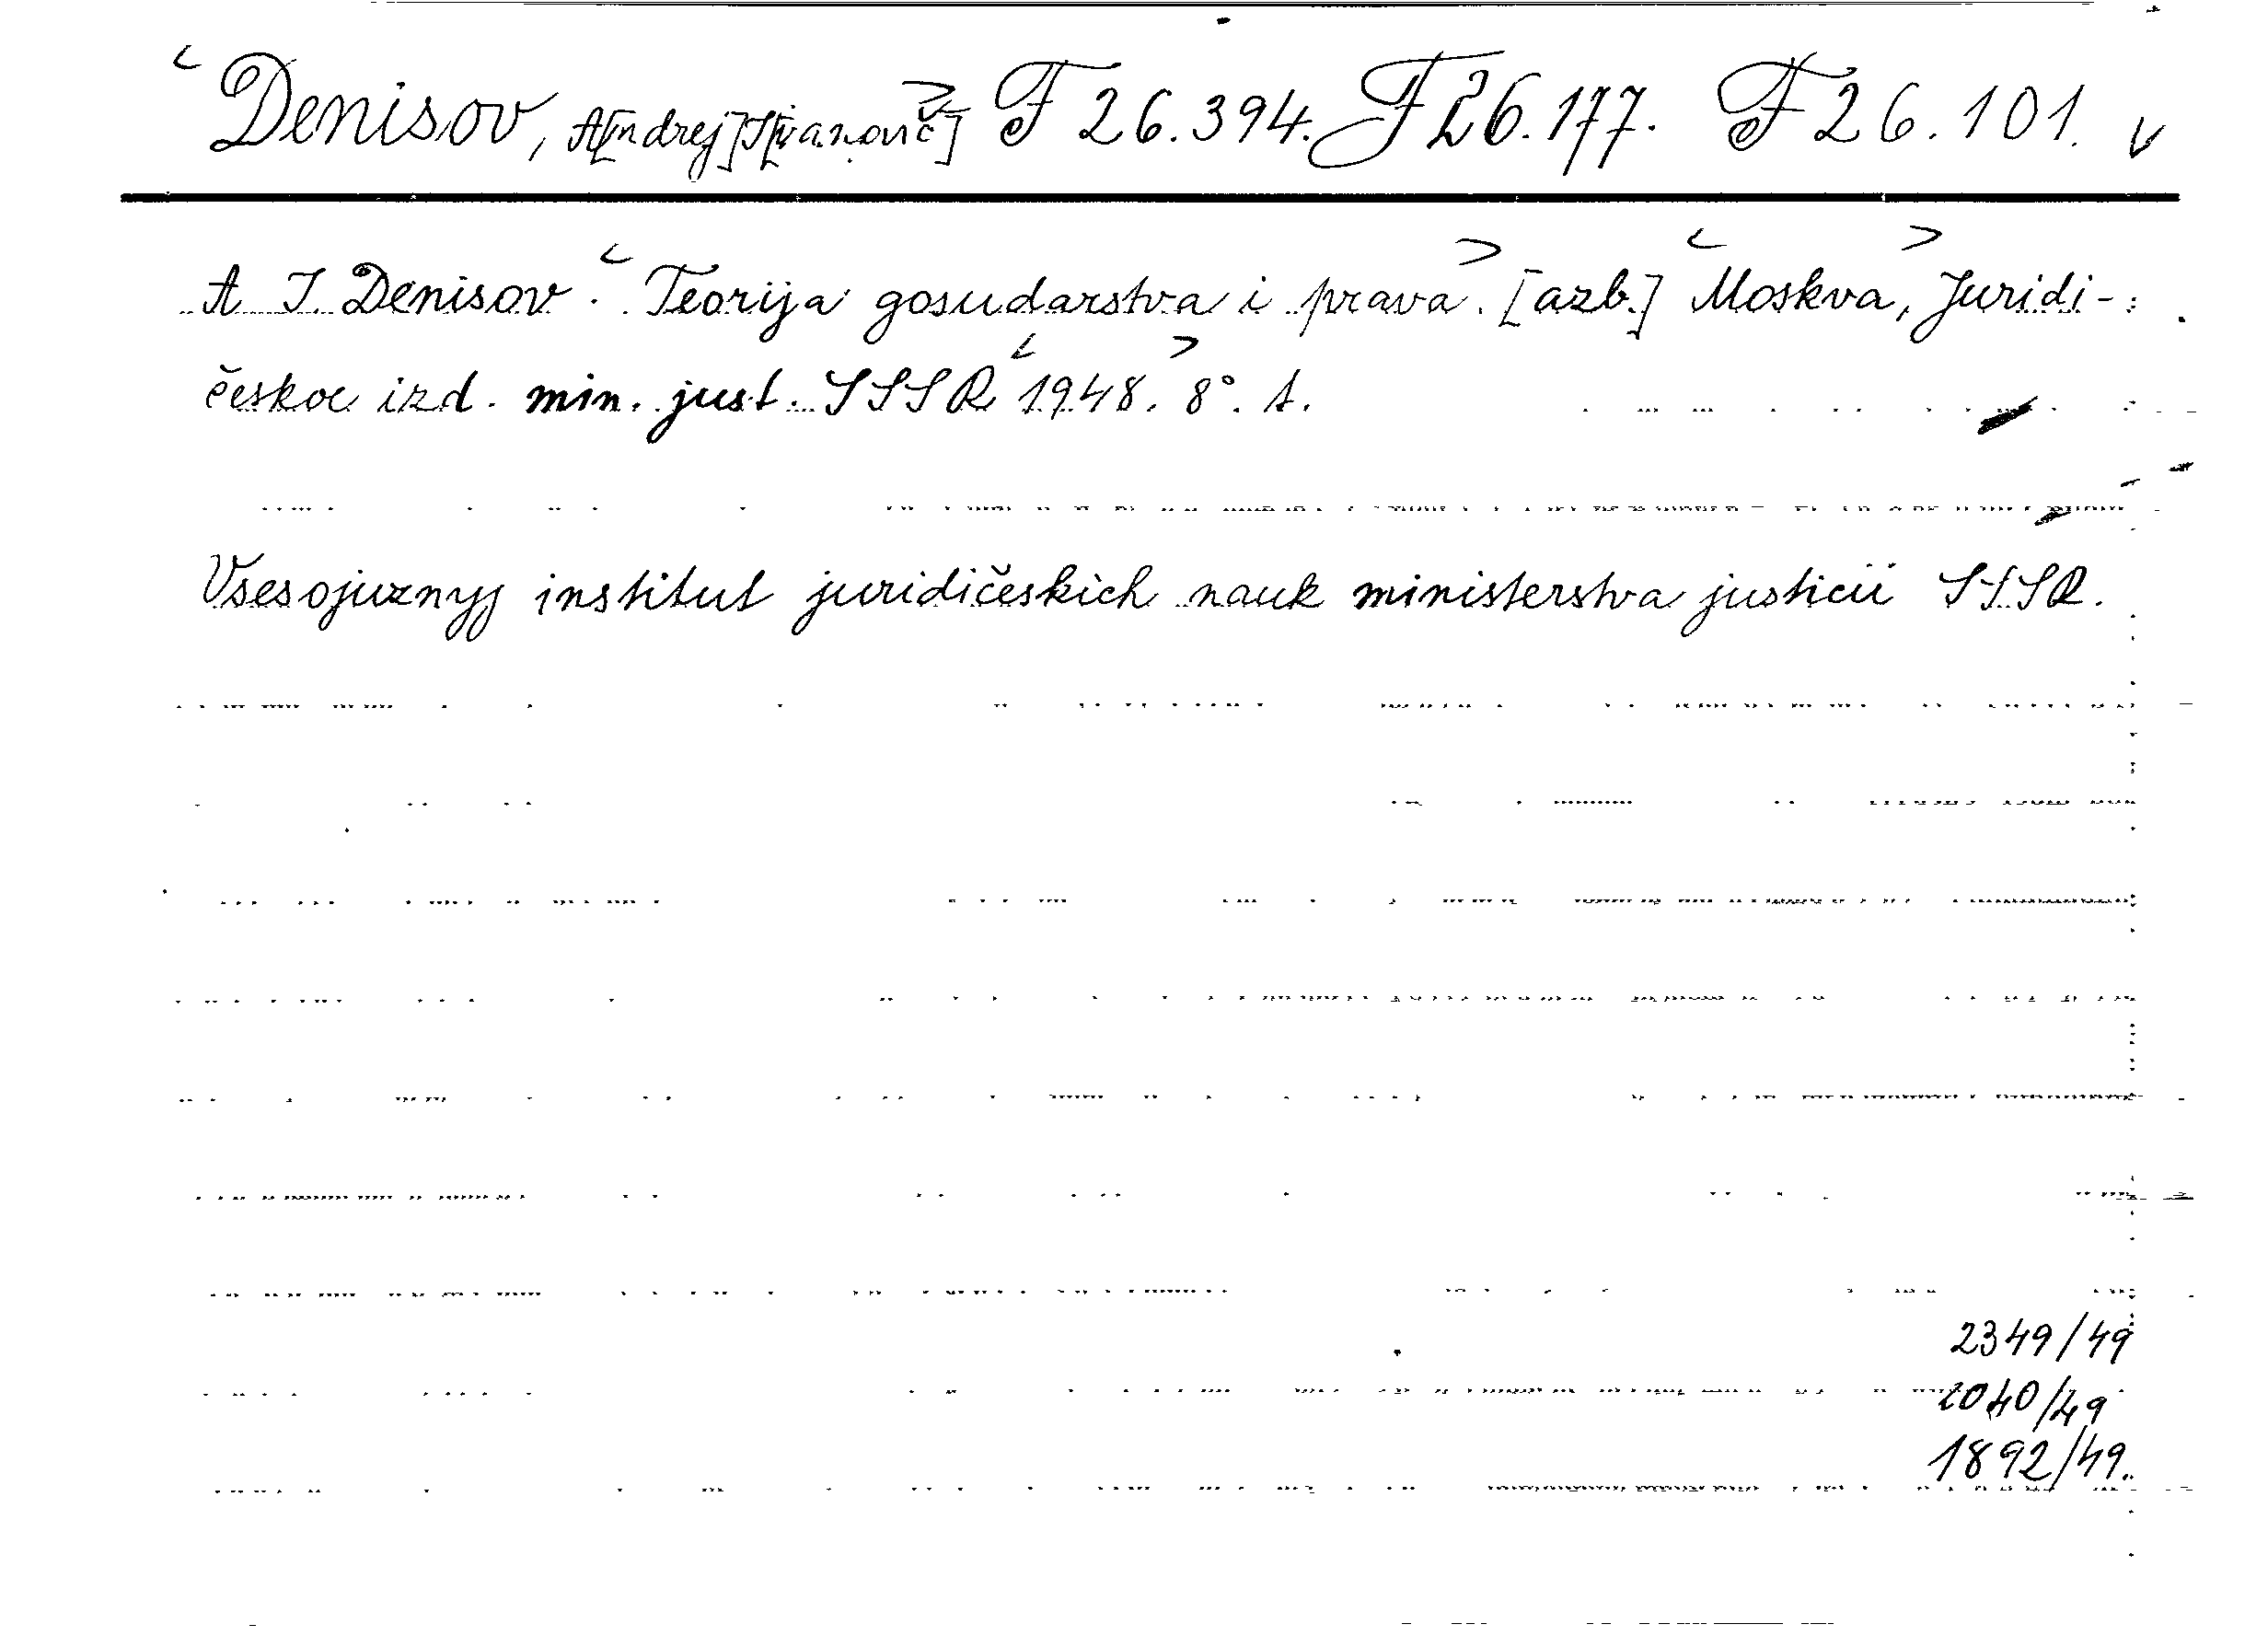 <Denisov, A[ndrej] I[vanovič]> F 26.394. F 26.177. F 26.101. v
A I. Denisov. <Teorija gosudarstva i prava>. [azb.] <Moskva>, Juridi-
českoe izd. min. just. SSSR <1948.> 8°. 1.
Vsesojuznyj institut juridičeskich nauk ministerstva justicii SSSR.
2349/49
2040/49
1892/49.